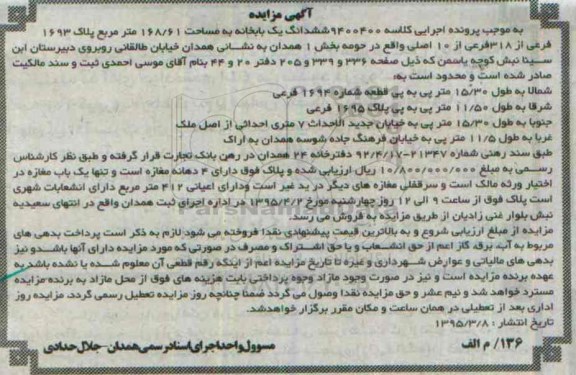 آگهی مزایده
به موجب پرونده اجرایی کلاسه ۹۴۰۰۴۰۰ ششدانگ یک بابخانه به مساحت ۱۶۸/۶۱ متر مربع پلاک ۱۶۹۳
فرعی از ۳۱۸فرعی از ۱۰ اصلی واقع در حومه بخش ۱ همدان به نشانی همدان خیابان طالقانی روبروی دبیرستان ابن
سینا نبش کوچه یاسمن که ذیل صفحه ۳۳۶ و ۳۳۹ و ۲۰۵ دفتر ۲۰ و ۴۴ بنام آقای موسی احمدی ثبت و سند مالکیت
صادر شده است و محدود است به:
شمالا به طول ۱۵/۳۰ متر پی به پی قطعه شماره ۱۶۹۴ فرعی
شرقا به طول ۱۱/۵۰ متر پی به پی پلاک ۱۶۹۵ فرعی
جنوبا به طول ۱۵/۳۰ متر پی به خیابان جدید الاحداث ۷ متری احداثی از اصل ملک
غربا به طول ۱۱/۵ متر پی به خیابان فرهنگ جاده شوسه همدان به اراک
طبق سند رهنی شماره ۲۱۳۴۷-۹۲/۴/۱۷ دفترخانه ۲۴ همدان در رهن بانک تجارت قرار گرفته و طبق نظر کارشناس
رسمی به مبلغ ۱۰/۸۰۰/۰۰۰/۰۰۰ ریال ارزیابی شده و پلاک فوق دارای ۴ دهانه مغازه است و تنها یک باب مغازه در
اختیار ورثه مالک است و سرقفلی مغازه های دیگر در ید غیر است ودارای اعیانی ۴۱۲ متر مربع دارای انشعابات شهری
است پلاک فوق از ساعت ۹ الی ۱۲ روز چهارشنبه مورخ ۱۳۹۵/۴/۲ در اداره اجرای ثبت همدان واقع در انتهای سعیدیه
نبش بلوار غنی زادیان از طریق مزایده به فروش می رسد.
مزایده از مبلغ ارزیابی شروع و به بالاترین قیمت پیشنهادی نقدا فروخته می شود لازم به ذکر است پرداخت بدهی های
مربوط به آب، برق، گاز اعم از حق انشعاب و یا حق اشتراک و مصرف در صورتی که مورد مزایده دارای آنها باشدو نیز
بدهی های مالیاتی و عوارض شهرداری و غیره تا تاریخ مزایده اعم از اینکه رقم قطعی آن معلوم شده یا نشده باشد به
عهده برنده مزایده است و نیز در صورت وجود مازاد وجوه پرداختی بابت هزینه های فوق از محل مازاد به برنده مزایده
مسترد خواهد شد و نیم عشر و حق مزایده نقدا وصول می گردد ضمنا چنانچه روز مزایده تعطیل رسمی گردد، مزایده روز
اداری بعد از تعطیلی در همان ساعت و مکان مقرر برگزار خواهدشد.
تاریخ انتشار : ۱۳۹۵/۳/۸
۱۳۶/ م الف
مسوول واحد اجرای اسناد رسمی همدان-جلال حدادی